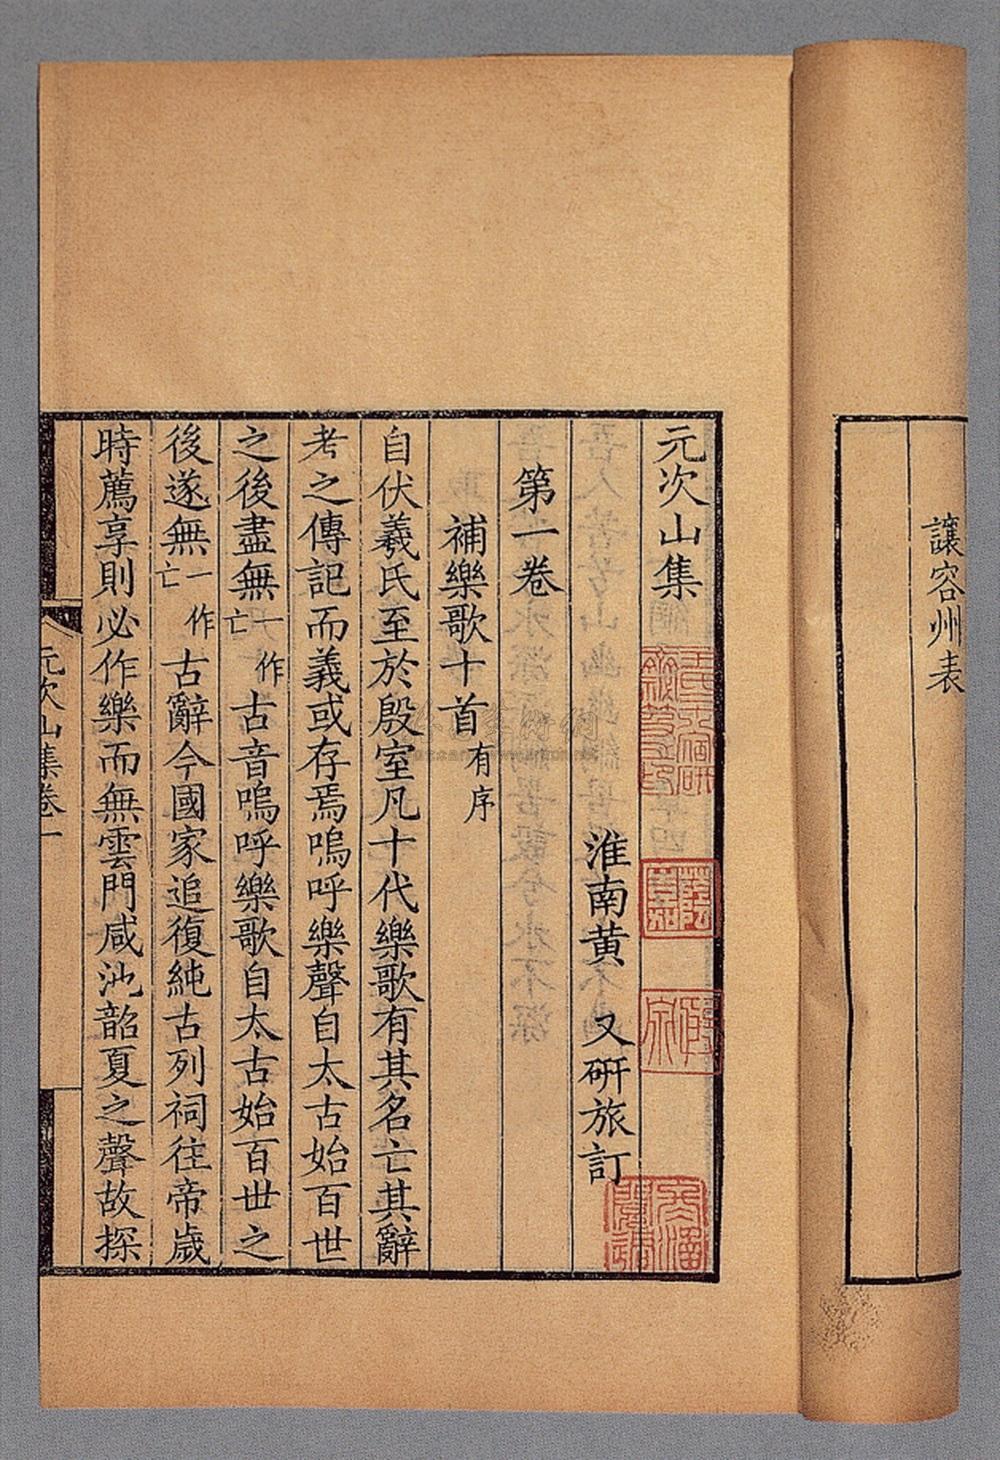 讓容州表
元次山集
淮南黄又研旅訂
第一卷
補樂歌十首有序
自伏羲氏至於殷室凡十代樂歌有其名亡其辭
考之傳記而義或存焉嗚呼樂聲自太古始百世
之後盡無一作亡古音嗚呼樂歌自太古始百世之
後遂無一作亡古辭今國家追復純古列祠往帝歳
時薦享則必作樂而無雲門咸池韶夏之聲故探
元次山集卷一